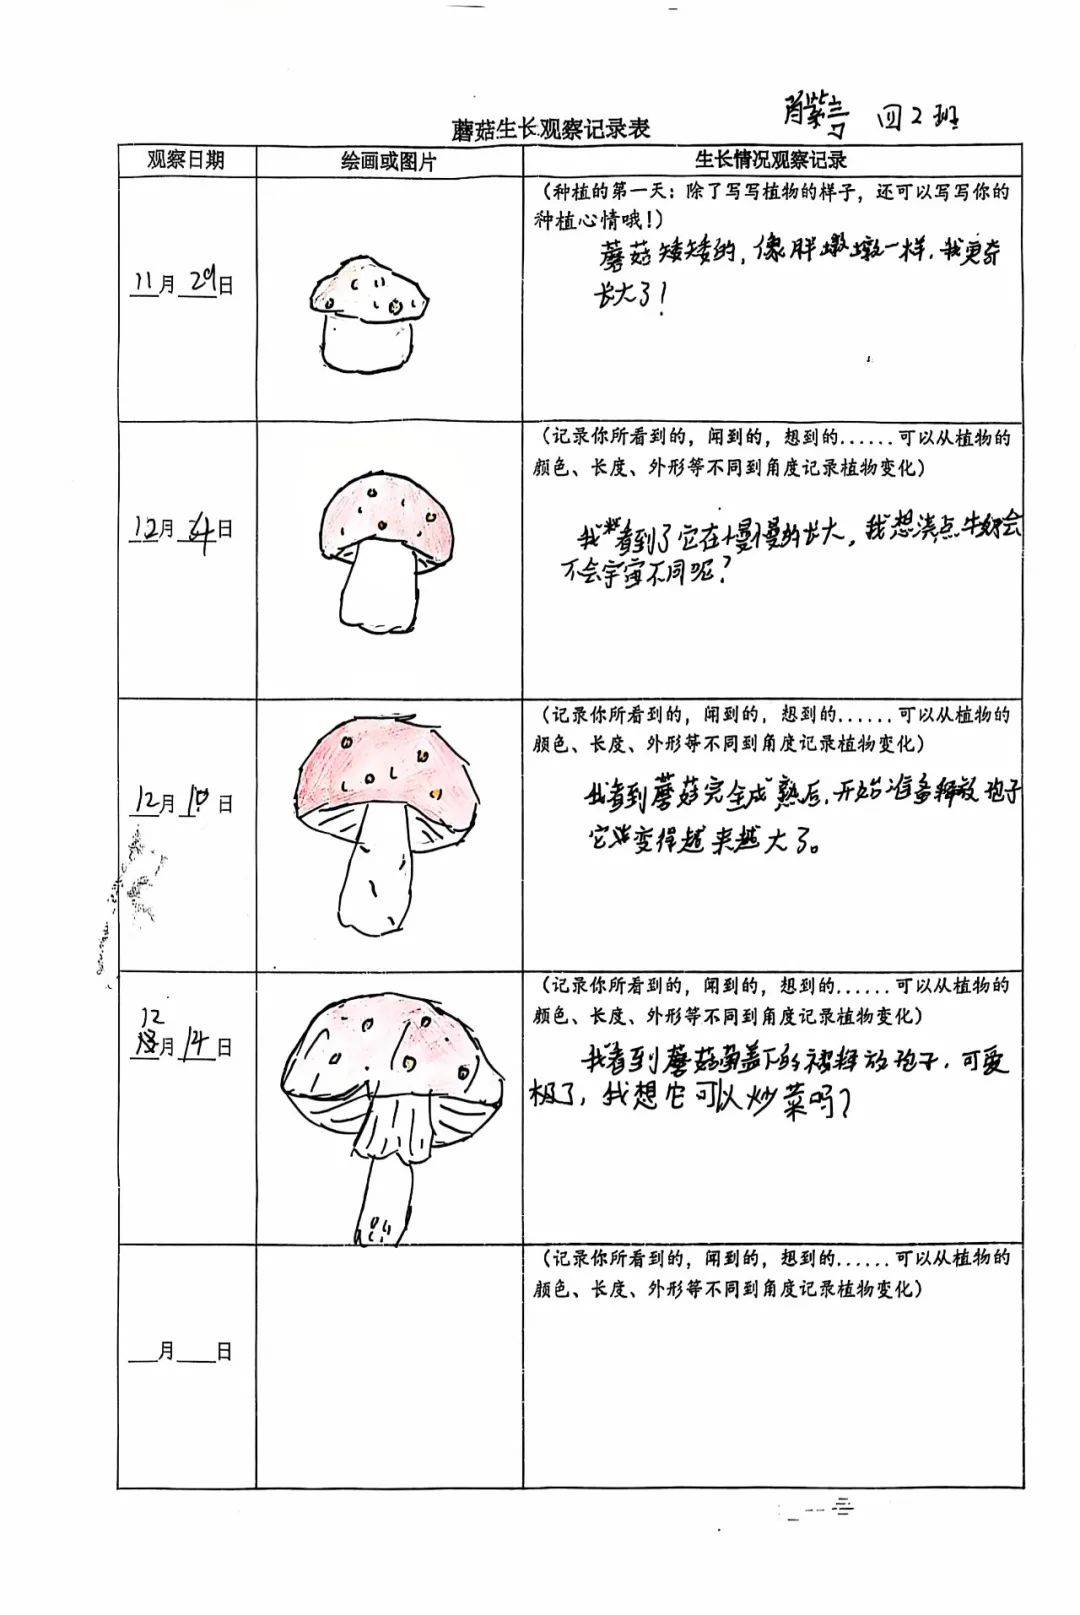 四2班
蘑菇生长观察记录表
观察日期 绘画或图片 生长情况观察记录
(种植的第一天：除了写写植物的样子，还可以写写你的
种植心情哦！)
11月29日
蘑菇矮矮的，像胖墩墩一样，我更奇
长大了！
(记录你所看到的，闻到的，想到的......可以从植物的
颜色、长度、外形等不同到角度记录植物变化)
12月4日
我看到了它在慢慢的长大，我想浇点牛奶会
不会宇宙不同呢？
(记录你所看到的，闻到的，想到的......可以从植物的
颜色、长度、外形等不同到角度记录植物变化)
12月10日
我看到蘑菇完全成熟后，开始准备释放孢子
它变得越来越大了。
(记录你所看到的，闻到的，想到的......可以从植物的
颜色、长度、外形等不同到角度记录植物变化)
12月14日
我看到蘑菇盖下的被释放孢子，可爱
极了，我想它可以炒菜吗？
(记录你所看到的，闻到的，想到的......可以从植物的
颜色、长度、外形等不同到角度记录植物变化)
___月___日